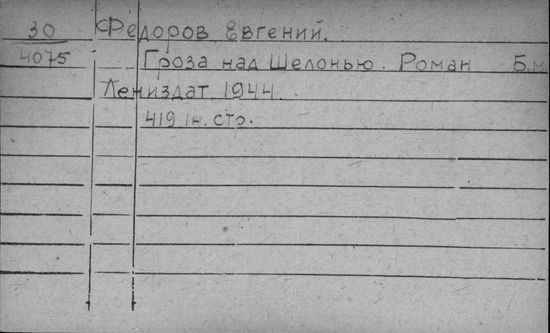 30 Федоров Евгений.
4075 Гроза над Шелонью. Роман Б.м.
Лениздат. 1944.
419 1н. стр.